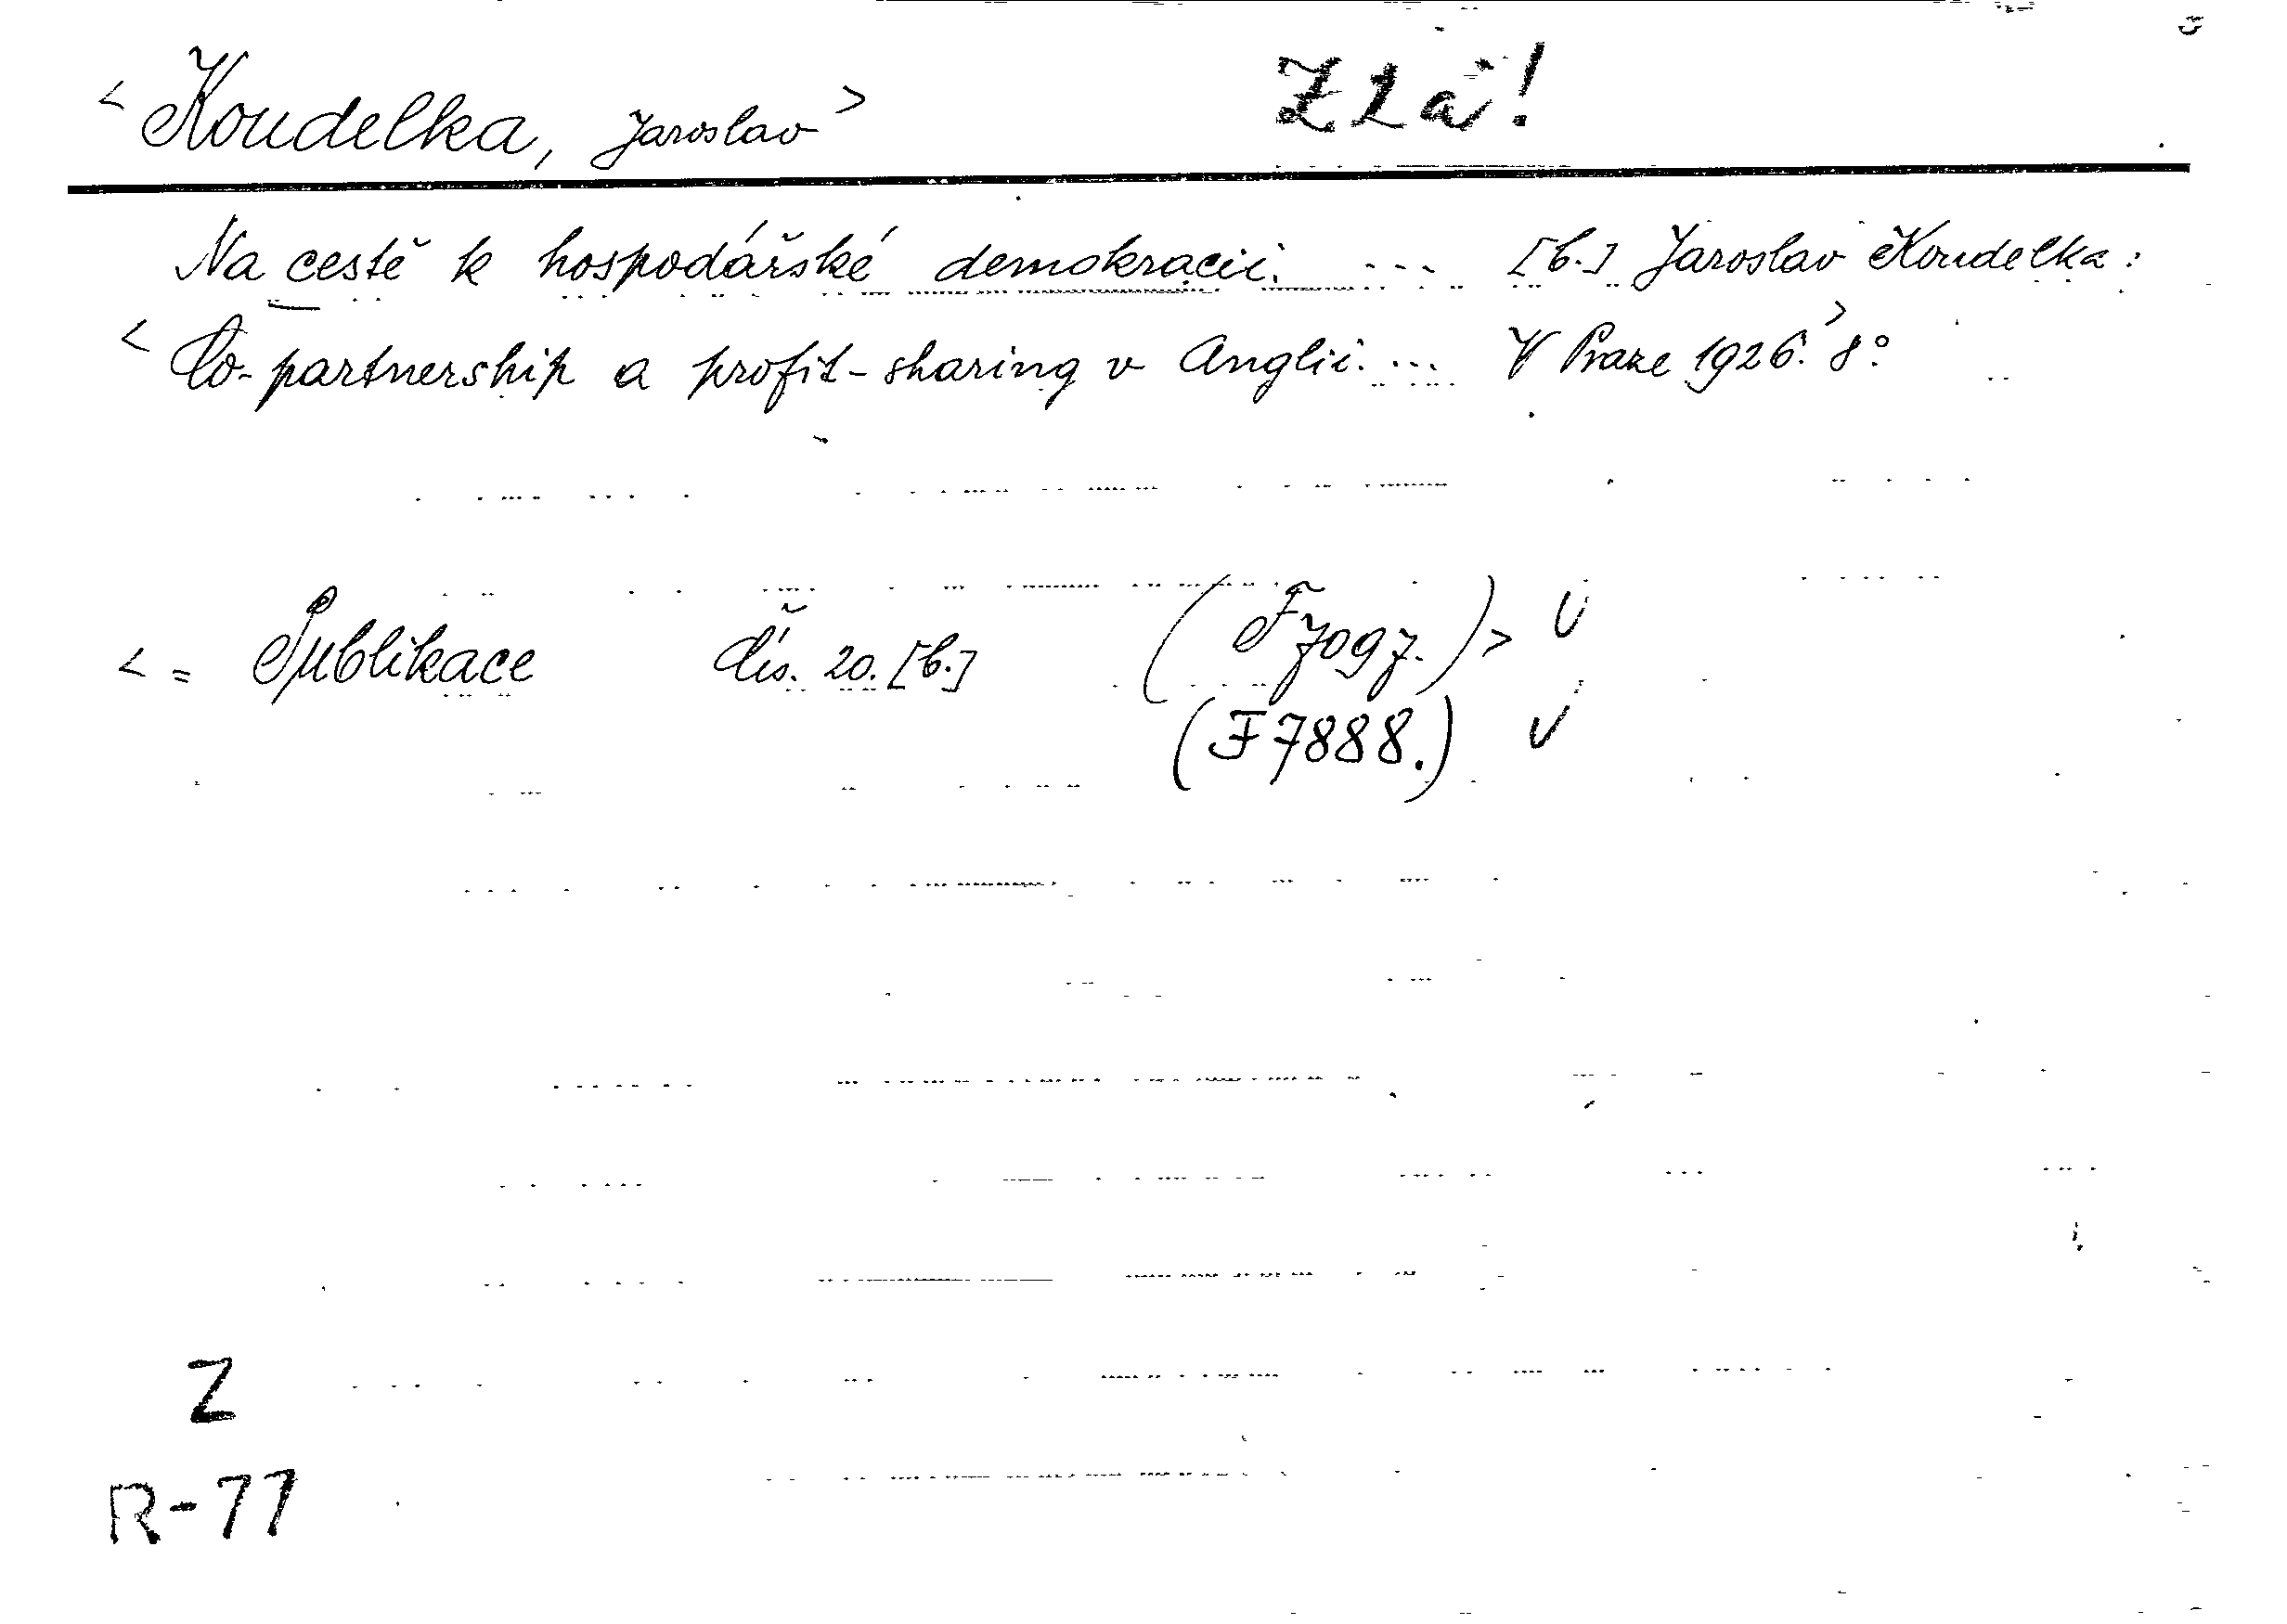 < Koudelka, Jaroslav > Zlá!
Na cestě k hospodářské demokracii. ... [b.] Jaroslav Koudelka:
< Co-partnership a profit-sharing v Anglii. ... V Praze 1926. > 8°
< = Publikace čís. 20. [b.] (F 7097.) > V
(F 7888.) V
Z
R-77